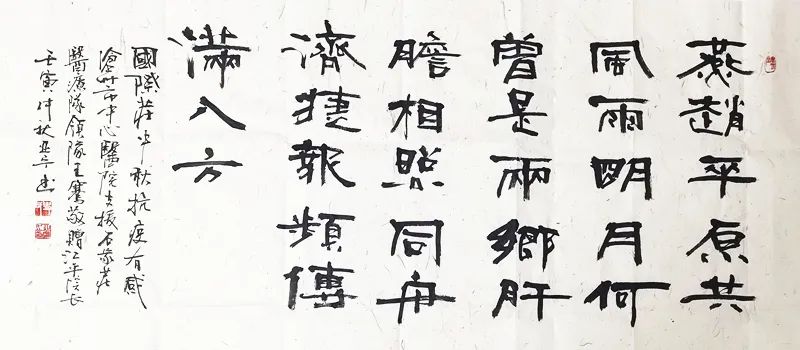 燕趙平原共
風雨明月何
曾是兩鄉肝
膽相照同舟
濟捷報頻傳
滿八方
國際莊半秋抗疫有感
滄州市中心醫院支援石家莊
醫療隊領隊王騫敬贈江平院長
壬寅仲秋亚宁书